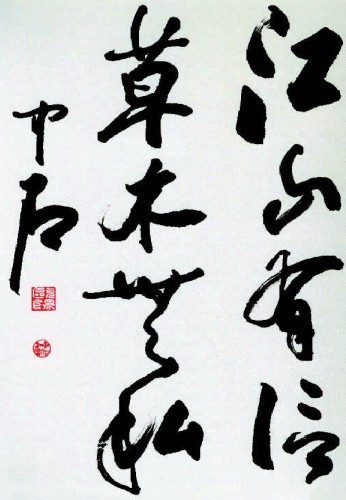 江山有信
草木无私
中石